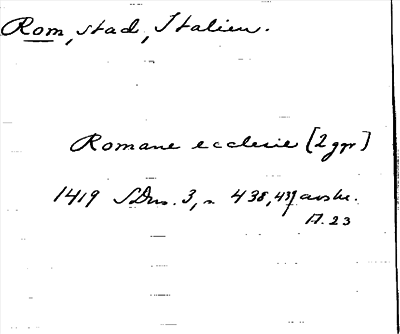 Rom, stad, Italien.
Romane ecclesie (2 ggr)
1419 SDns. 3, s 438, 439 avskr.
A. 23